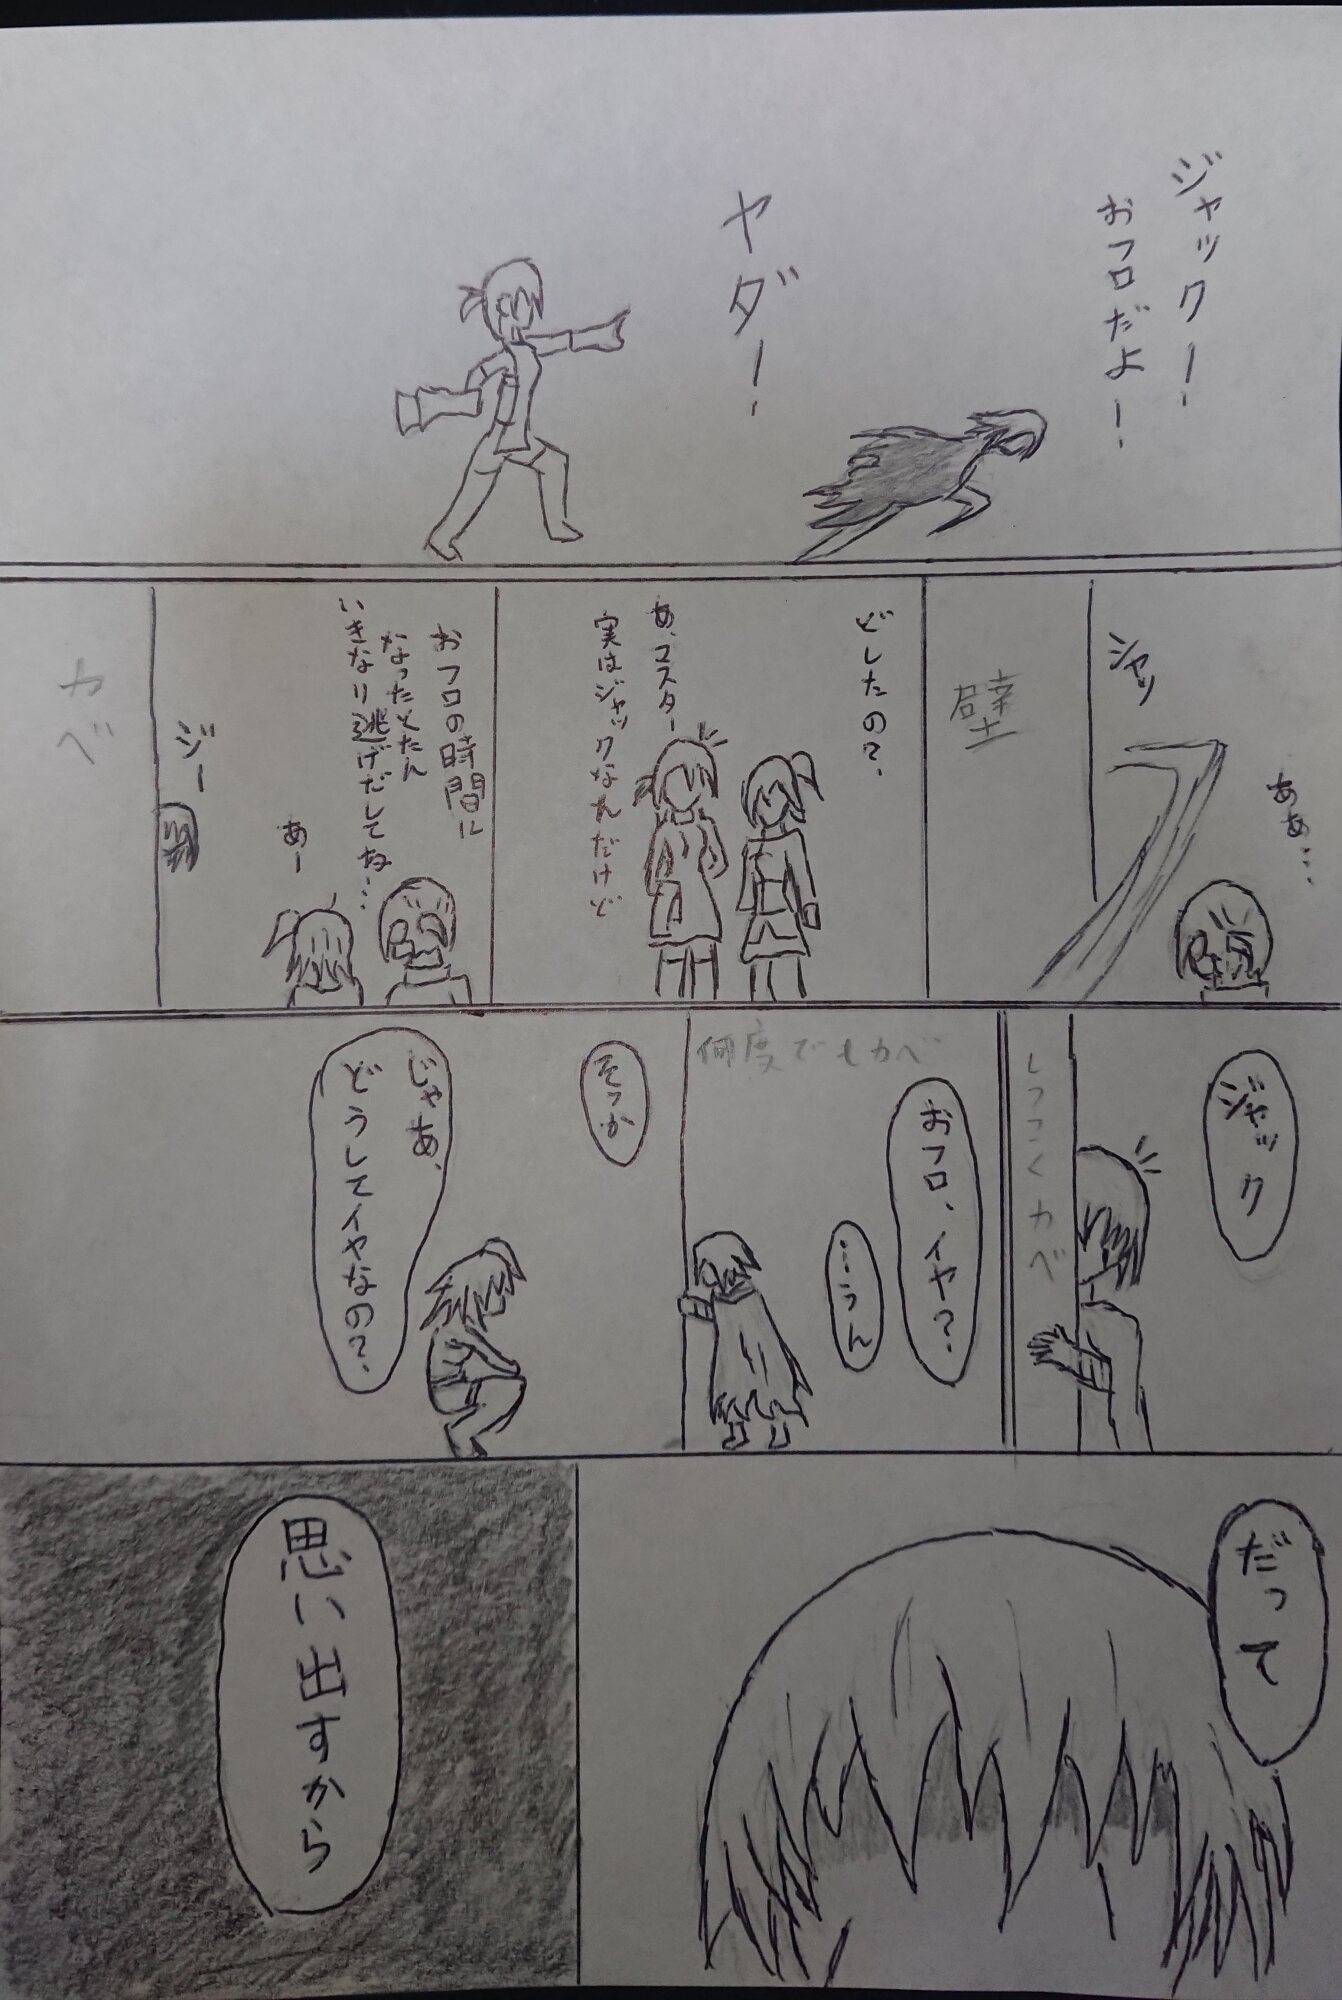 ジャックー!
おフロだよー!
ヤダー!
ああ…
シャッ
壁
どしたの?
あ、コスター
実はジャックなんだけど
おフロの時間に
なったとたん
いきなり逃げだしてね…
あー
ジー
カベ
ジャック
しつこくカベ
おフロ、イヤ?
…うん
何度でもカベ
そっか
じゃあ、
どうしてイヤなの?
だって
思い出すから